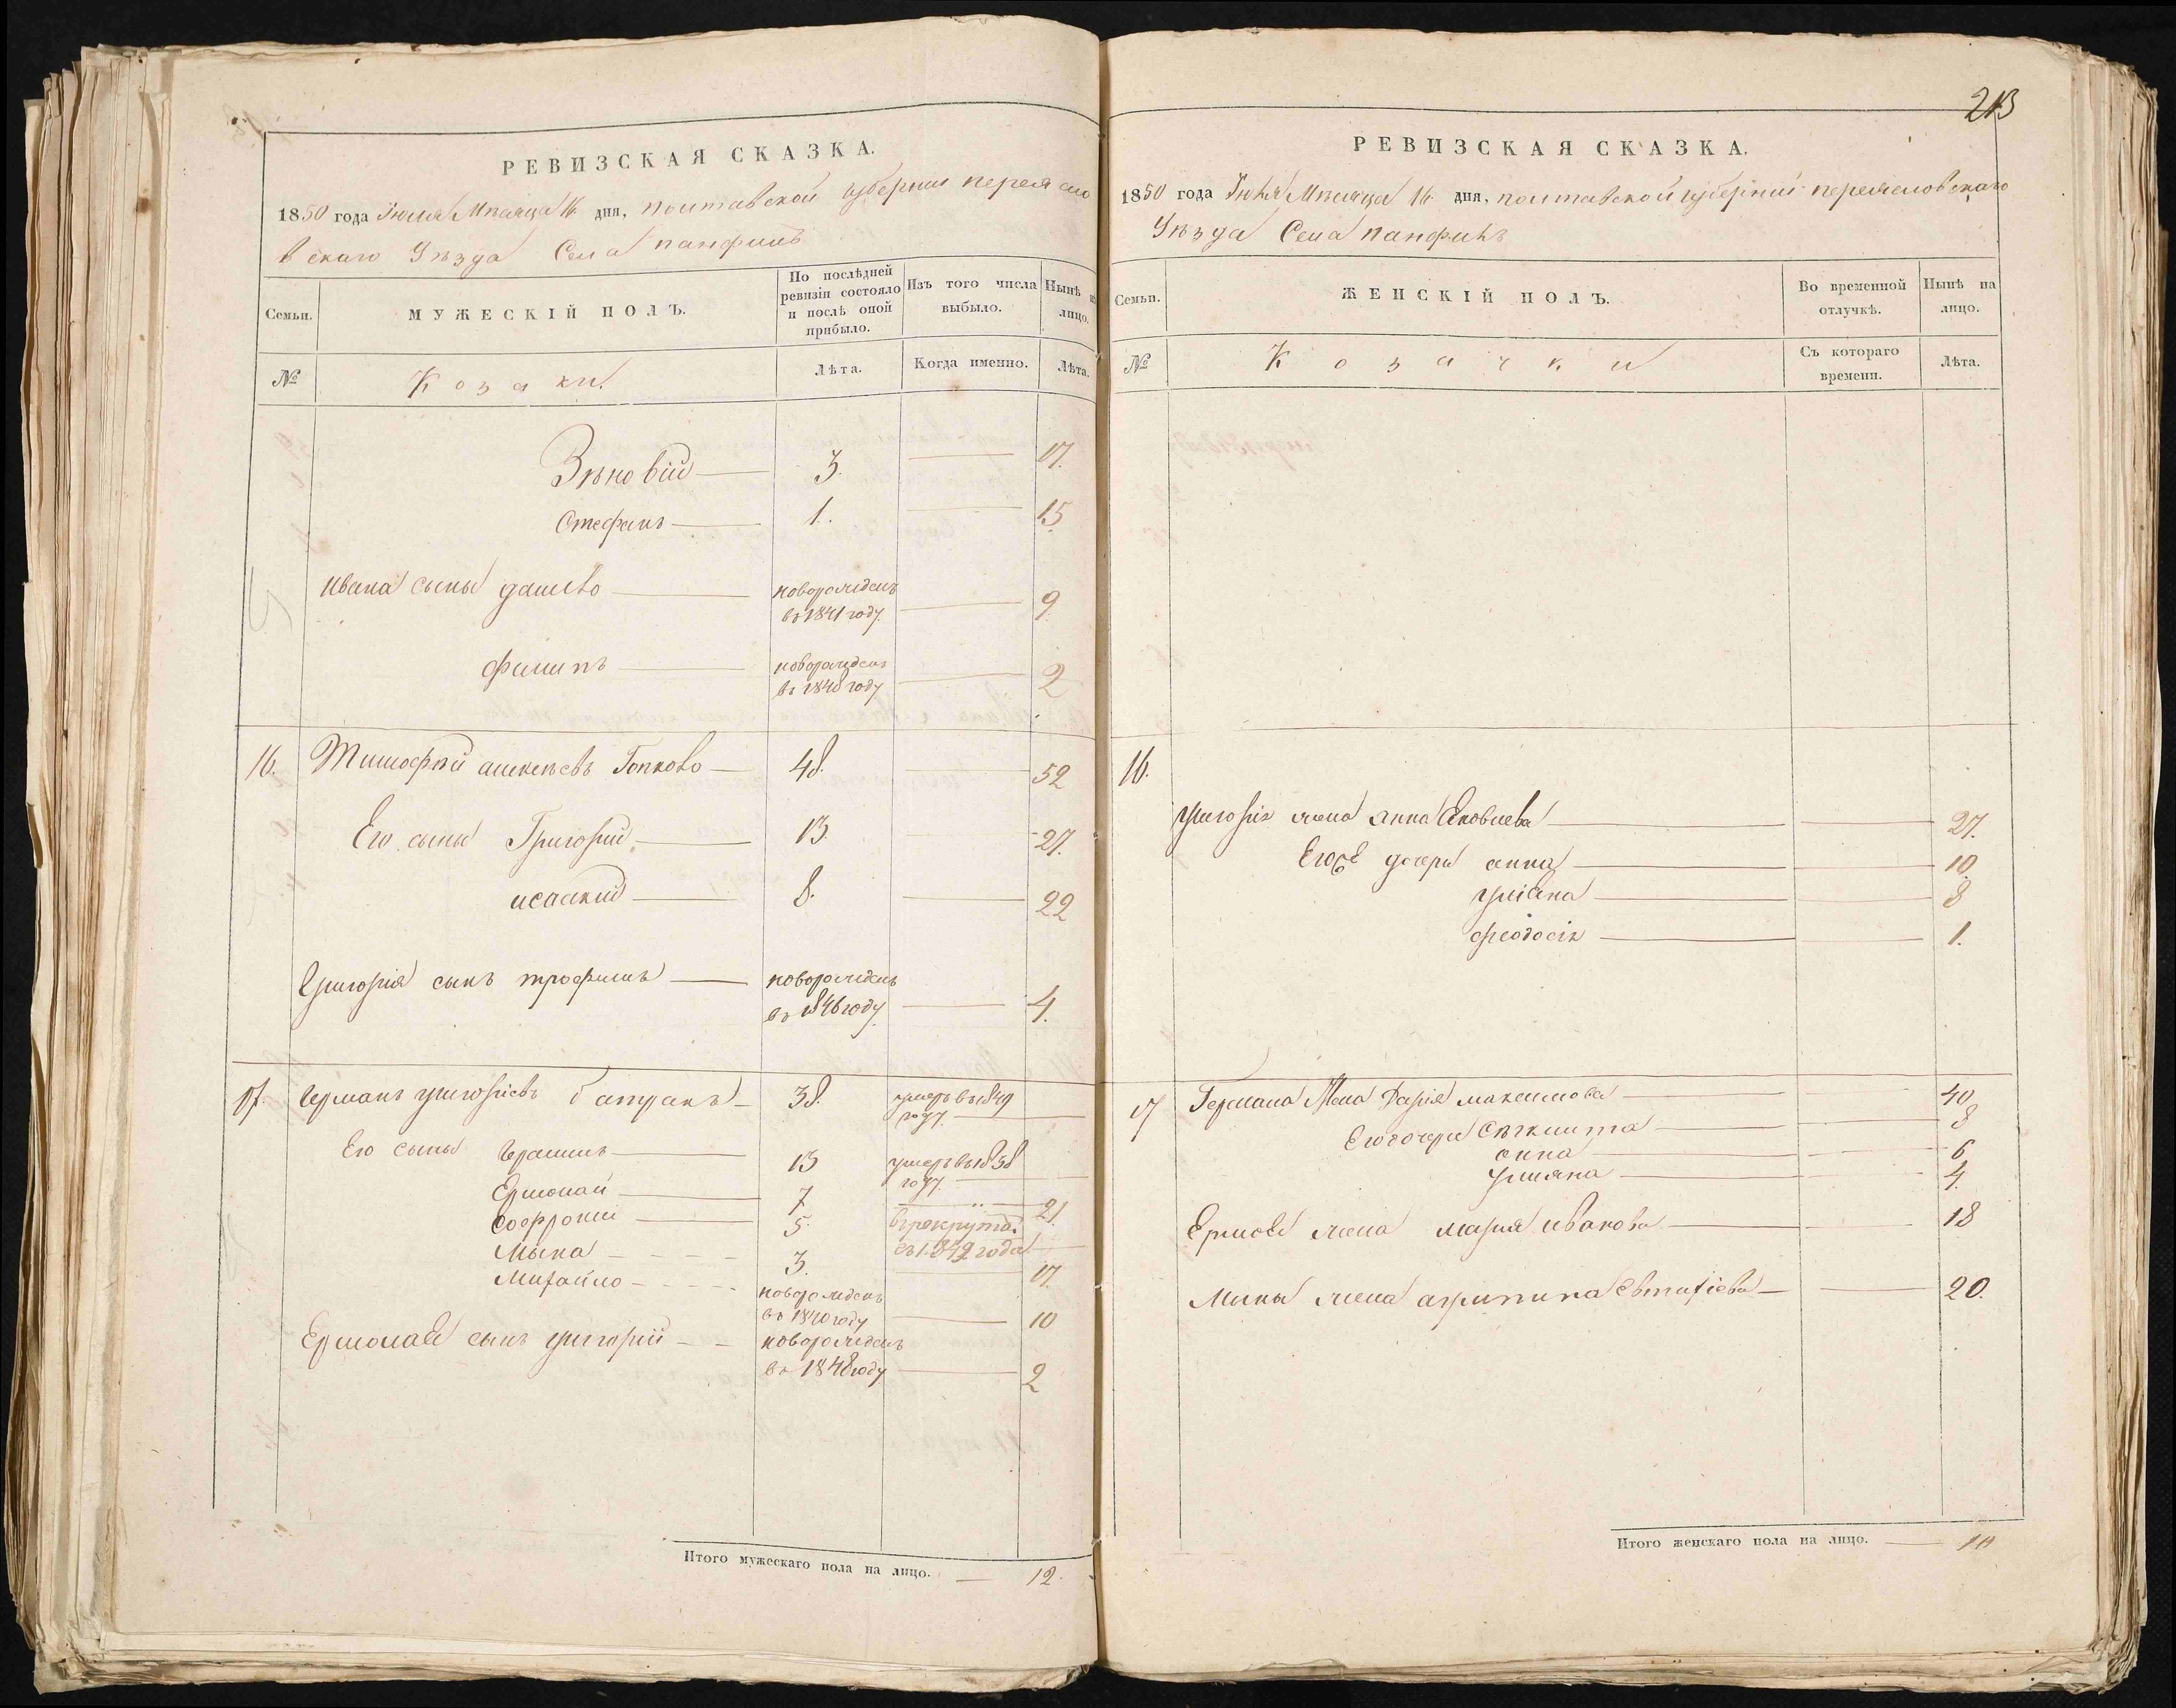 РЕВИЗСКАЯ СКАЗКА.
1850 года Июня Мѣсяца 16 дня, полтавской губернии переясло
вскаго Уѣзда Села панфилъ
Семьи.
МУЖЕСКІЙ ПОЛЪ.
По послѣдней ревизіи состояло и послѣ оной прибыло.
Изъ того числа выбыло.
Нынѣ на лицо.
№
Козаки
Лѣта.
Когда именно.
Лѣта.
Зѣновій — 3. — 17.
Стефанъ — 1. — 15
Ивана сыны данило — новорожденъ
въ 1841 году. — 9
филипъ — новорожденъ
въ 1848 году — 2
16. Тимофѣй алексѣевъ — 48. — 52
Его сыны Григорий — 13 — 27.
исаакий — 8. — 22
Григория сынъ трофимъ — новорожденъ
въ 1846 году — 4.
17. Германъ григориевъ батракъ — 38. умеръ въ 1849
году. —
Его сыны Герасимъ — 13 умеръ въ 1838
году. —
Ермолай — 7 — 21.
Софроний — 5. в рекруты
съ 1849 года —
Мына — 3. — 17.
Михайло — новорожденъ
въ 1840 году — 10
Ермолая сынъ григорий — новорожденъ
въ 1848 году — 2
Итого мужескаго пола на лицо. — 12.
213
РЕВИЗСКАЯ СКАЗКА.
1850 года Июня Мѣсяца 16 дня, полтавской губернии переясловскаго
Уѣзда Села панфилъ
Семьи.
ЖЕНСКІЙ ПОЛЪ.
Во временной отлучкѣ.
Нынѣ на лицо.
№
Козачки
Съ котораго времени.
Лѣта.
16.
григория жена Анна Яковлева — 27.
Его дочери анна — 10
улияна — 8
феодосия — 1.
17 Германа Жена Дария максимова — 40
Его дочери — 8
анна — 6
улияна — 4.
Ермолая жена мария иванова — 18
Мины жена агрипина Евтихиева — 20.
Итого женскаго пола на лицо. — 10